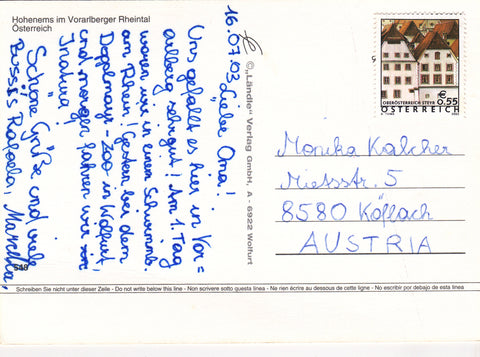 Hohenems im Vorarlberger Rheintal
Österreich
16.07.03
Liebe Oma!
Uns gefällt es hier in Vor=
arlberg sehr gut! Am 1. Tag
waren wir in einem Schwimmb.
am Rhein! Gestern bei dem
Dopplmayr-Zoo in Wolfurt,
und morgen fahren wir
Inatura
Schöne Grüße und viele
Bussi's Rafaela, Marcella,
545
© „Ländle" Verlag GmbH, A - 6922 Wolfurt
€ 0,55
OBERÖSTERREICH STEYR
ÖSTERREICH
Monika Kalcher
5
8580 Köflach
AUSTRIA
Schreiben Sie nicht unter dieser Zeile - Do not write below this line - Non scrivere sotto questa linea - Ne rien écrire au dessous de cette ligne - No escribir por debajo de esta línea